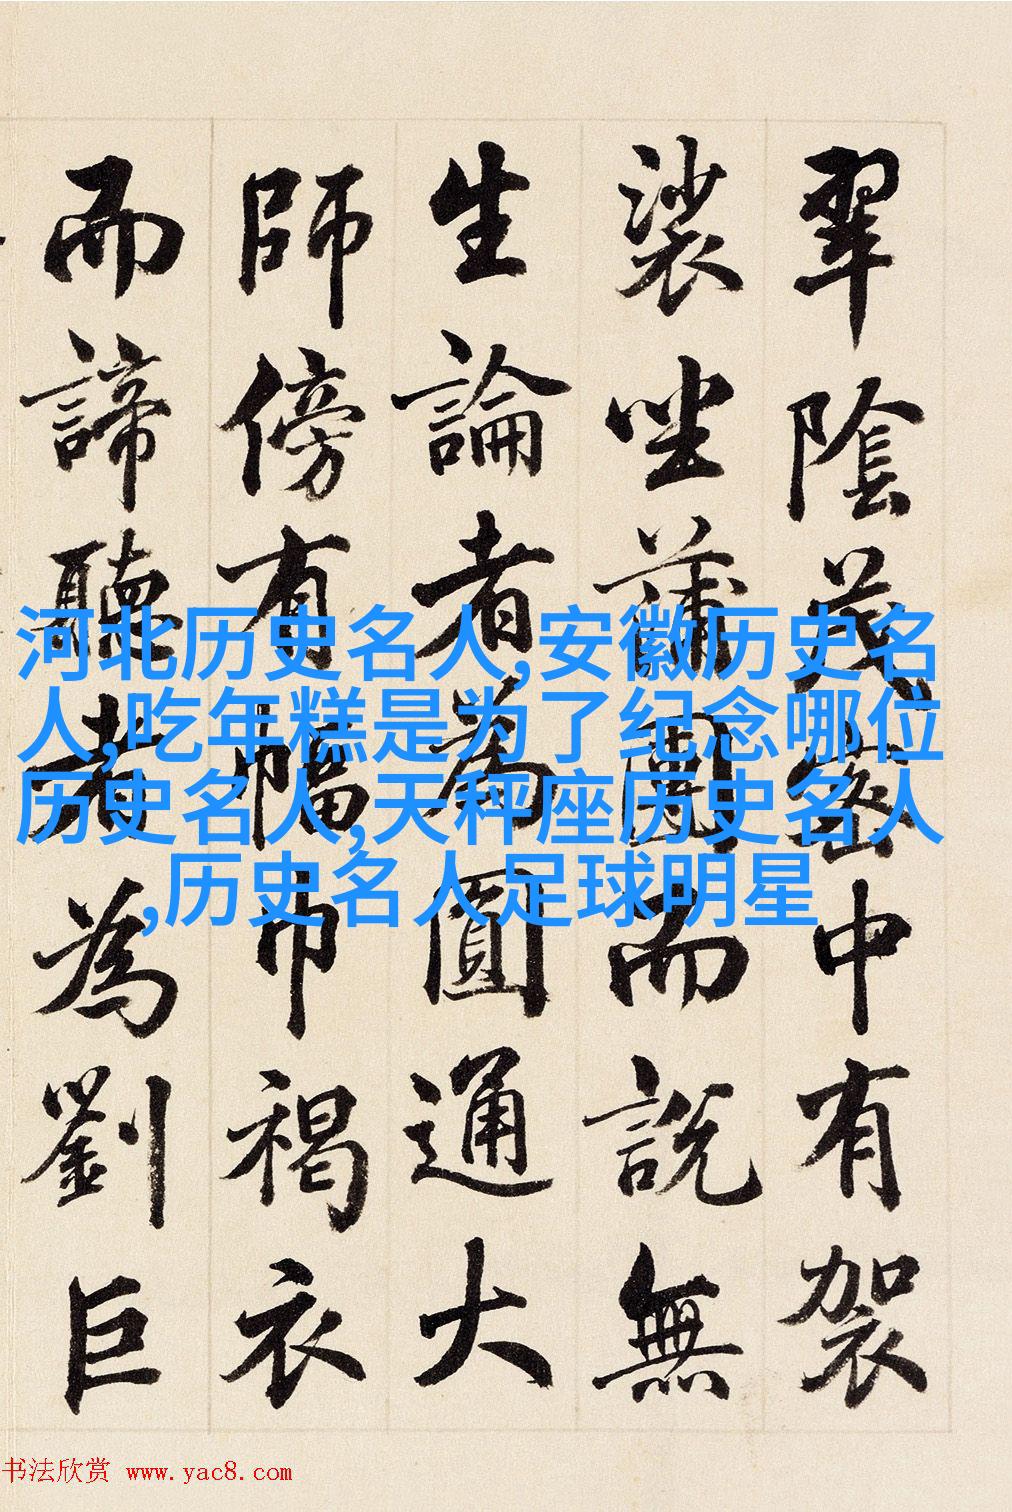 翠陰茂密中有袈
裟坐蒲團而說無
生論者為圓通大
師傍有幅巾褐衣
而諦聽者為劉巨
河北历史名人,安徽历史名
人,吃年糕是为了纪念哪位
历史名人,天秤座历史名人
,历史名人足球明星
书法欣赏 www.yac8.com